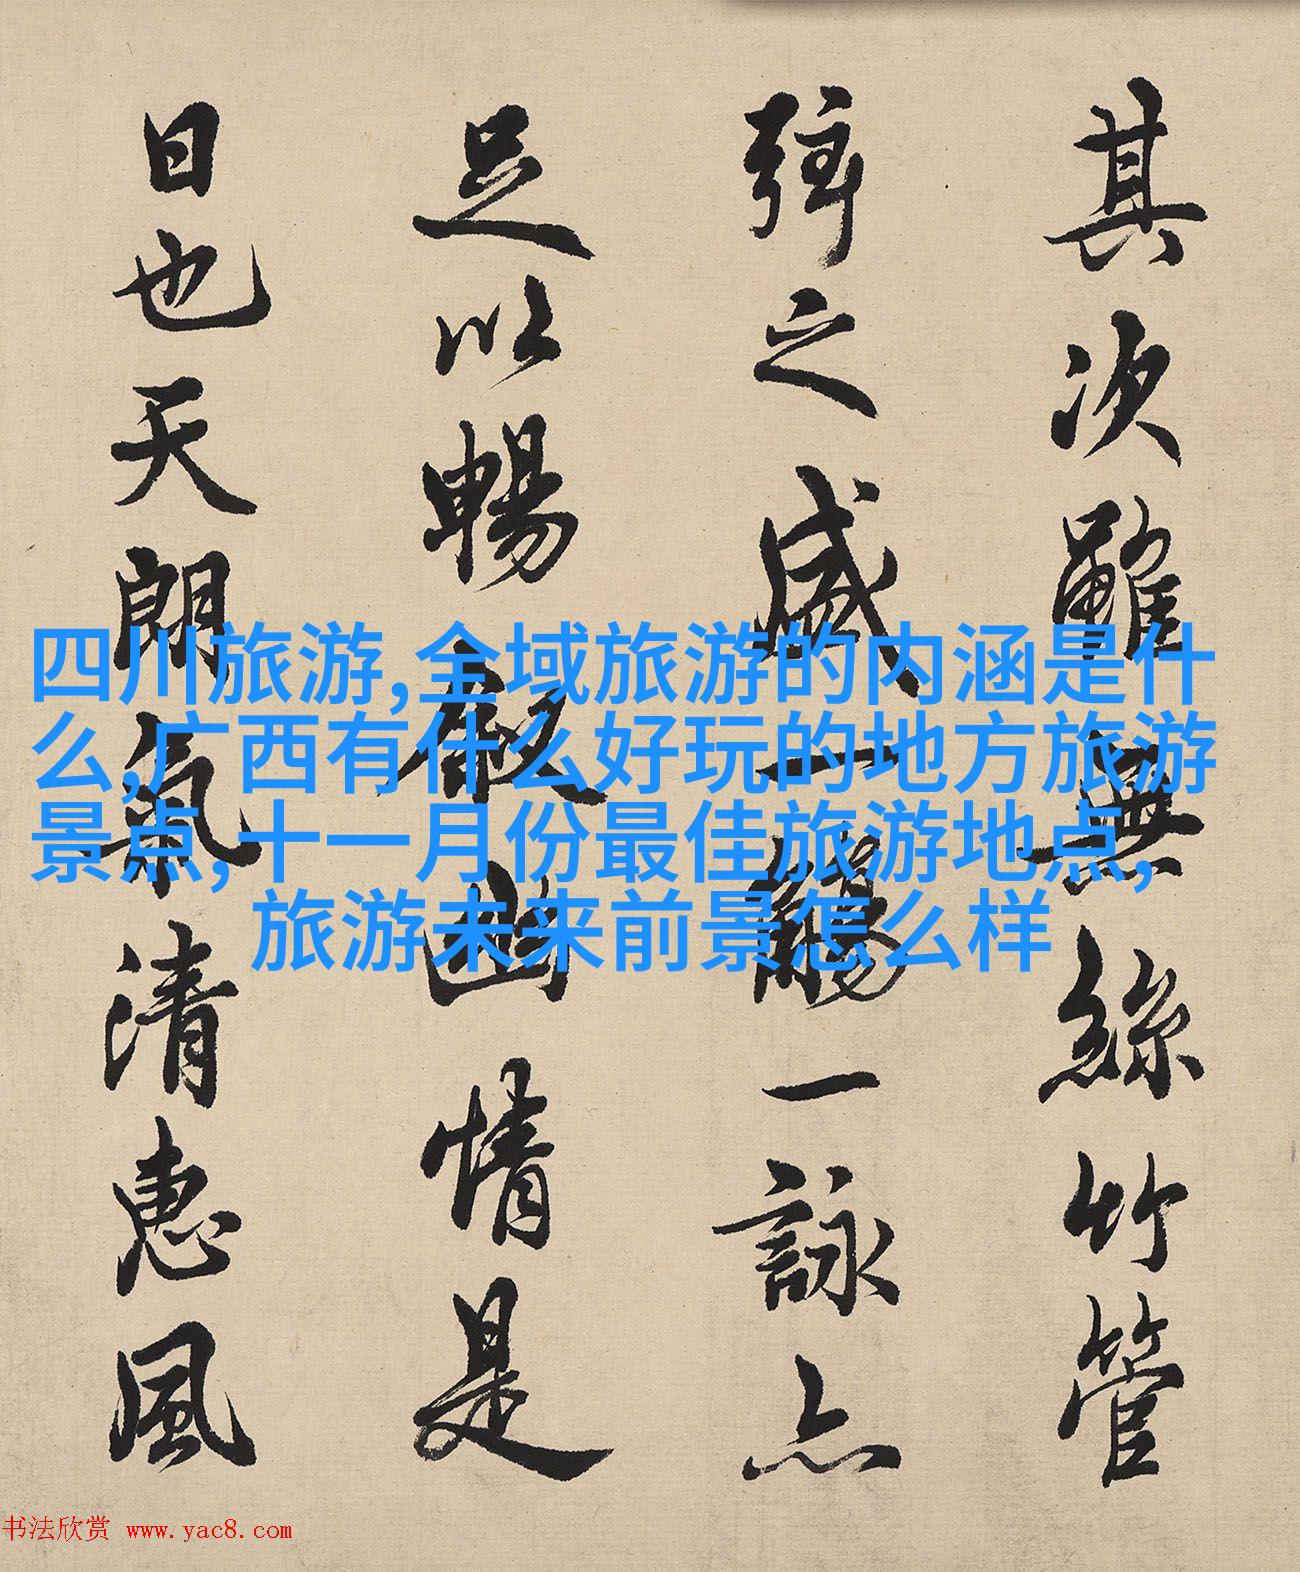 其次雖無絲竹管
弦之盛一觴一詠亦
足以暢叙幽情是
日也天朗氣清惠風
四川旅游,全域旅游的内涵是什
么,广西有什么好玩的地方旅游
景点,十一月份最佳旅游地点,
旅游未来前景怎么样
书法欣赏 www.yac8.com